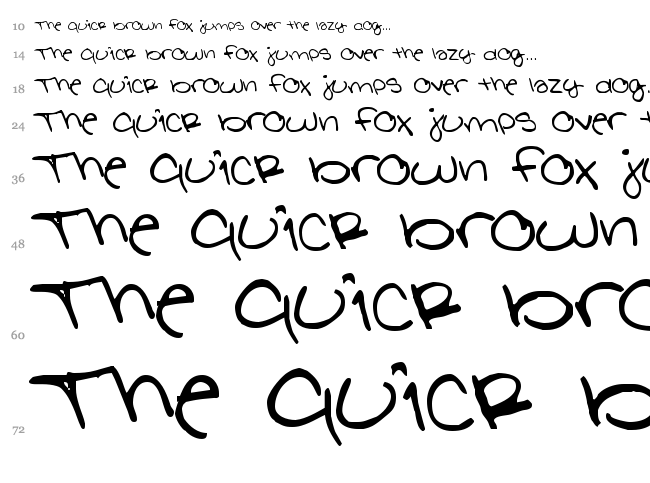 10 The quick brown fox jumps over the lazy dog...
14 The quick brown fox jumps over the lazy dog...
18 The quick brown fox jumps over the lazy dog.
24 The quick brown fox jumps over
36 The quick brown fox
48 The quick brown
60 The quick
72 The quick